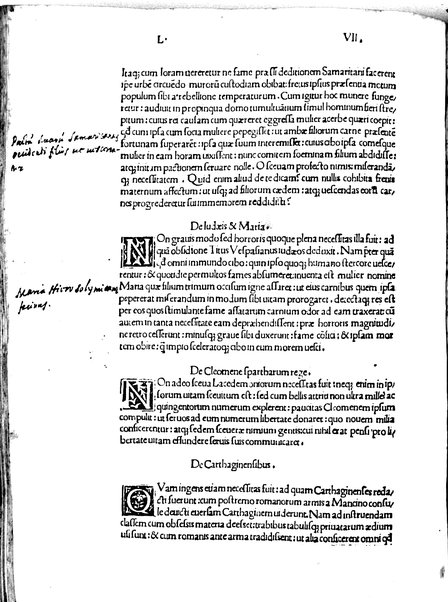 L. VII.
Itaq; cum foram uereretur ne fame praessi deditionem Samaritani facerent
ipe urbē circuēdo murorū custodiam obibat: freus ipsius praesentia metum
populum sibi a rebellione temperaturum. Cum igitur hoc munere funge/
retur: audiuit in propinqua domo tumultuariium simul hominum fieri stre/
pitum: cuius rei causam cum quaereret egressa mulier acerbe queri coepit:
qđ cum ipsa cum socia muliere pepegisset: ut ambae filiorum carne praesentē
fortunam superarēt: ipsa quae suum interemisset: cuius cibo ipsa comesque
mulier in eam horam usa essent: nunc comitem foeminam filium abdidisse:
atq; initam pactionem seruare nolle. O seculum profecto nimis miserandā
q; necessitatem. Quid enim aliud de te dicam? cum nullis cohibita frenis
maternum affectum: ut usq; ad filiorum caedem: atq; uescendas eorū car/
nes progrederetur suimmemorem reddidisti?
Palrū inanū Samaritanas
occidisti filios ne
De Iudaeis & Maria.
NOn grauis modo sed horroris quoque plena necessitas illa fuit: ad
quā obsidione Titus Vespasianus iudaeos deduxit. Nam praeter quā
qđ omni immundo cibo: quin ipso quoq; humano stercore uesce/
rentur: & quotidie permultos fames absumeret: inuenta est mulier nomine
Maria quae filium trimum occisum igne assaret: ut eius carnibus quem ipsa
pepererat miserandum in modum sibi uitam prorogaret. detectaq; res est
per eos quos stimulante fame assatarum carnium odor ad eam traxerat: cū
autem in tanta necessitate eam depraehendissent: prae horroris magnitudi/
ne retrocesserunt: minusq; graue sibi duxerunt: fame cōfici: & ipsam mor
tem obire: q̄ impio sceleratoq; cibo in cum morem uesci.
Maria Hierosolymitana
De Cleomene spartharum rege.
NOn adeo saeua Lacedemoniorum necessitas fuit: neq; enim in ip/
sorum uitam saeuitum est: sed cum bellis attriti non ultra mille ac
quingentorum numerum explerent: paucitas Cleomenem ipsum
compulit: ut seruos ad eum numerum libertate donaret: quo nouem milia
conficerentur: atq; sedem seuerae nimium gentis: cui nihil erat pensi pro li/
bertate uitam effundere seruis suis communicaret.
De Carthaginensibus.
QVam ingens etiam necessitas fuit: ad quam Carthaginenses redac/
ti fuerunt: cum postremo romanorum armis a Mancino consu/
le deuicti euersam Carthaginem uiderunt. Nam ad instruendam
classem cum obsessis materia deesset: trabibus tabulisq; priuatarum aedium
usi sunt: & cum romanis ante arma tradidissent: ut alia conficerent omni qđ